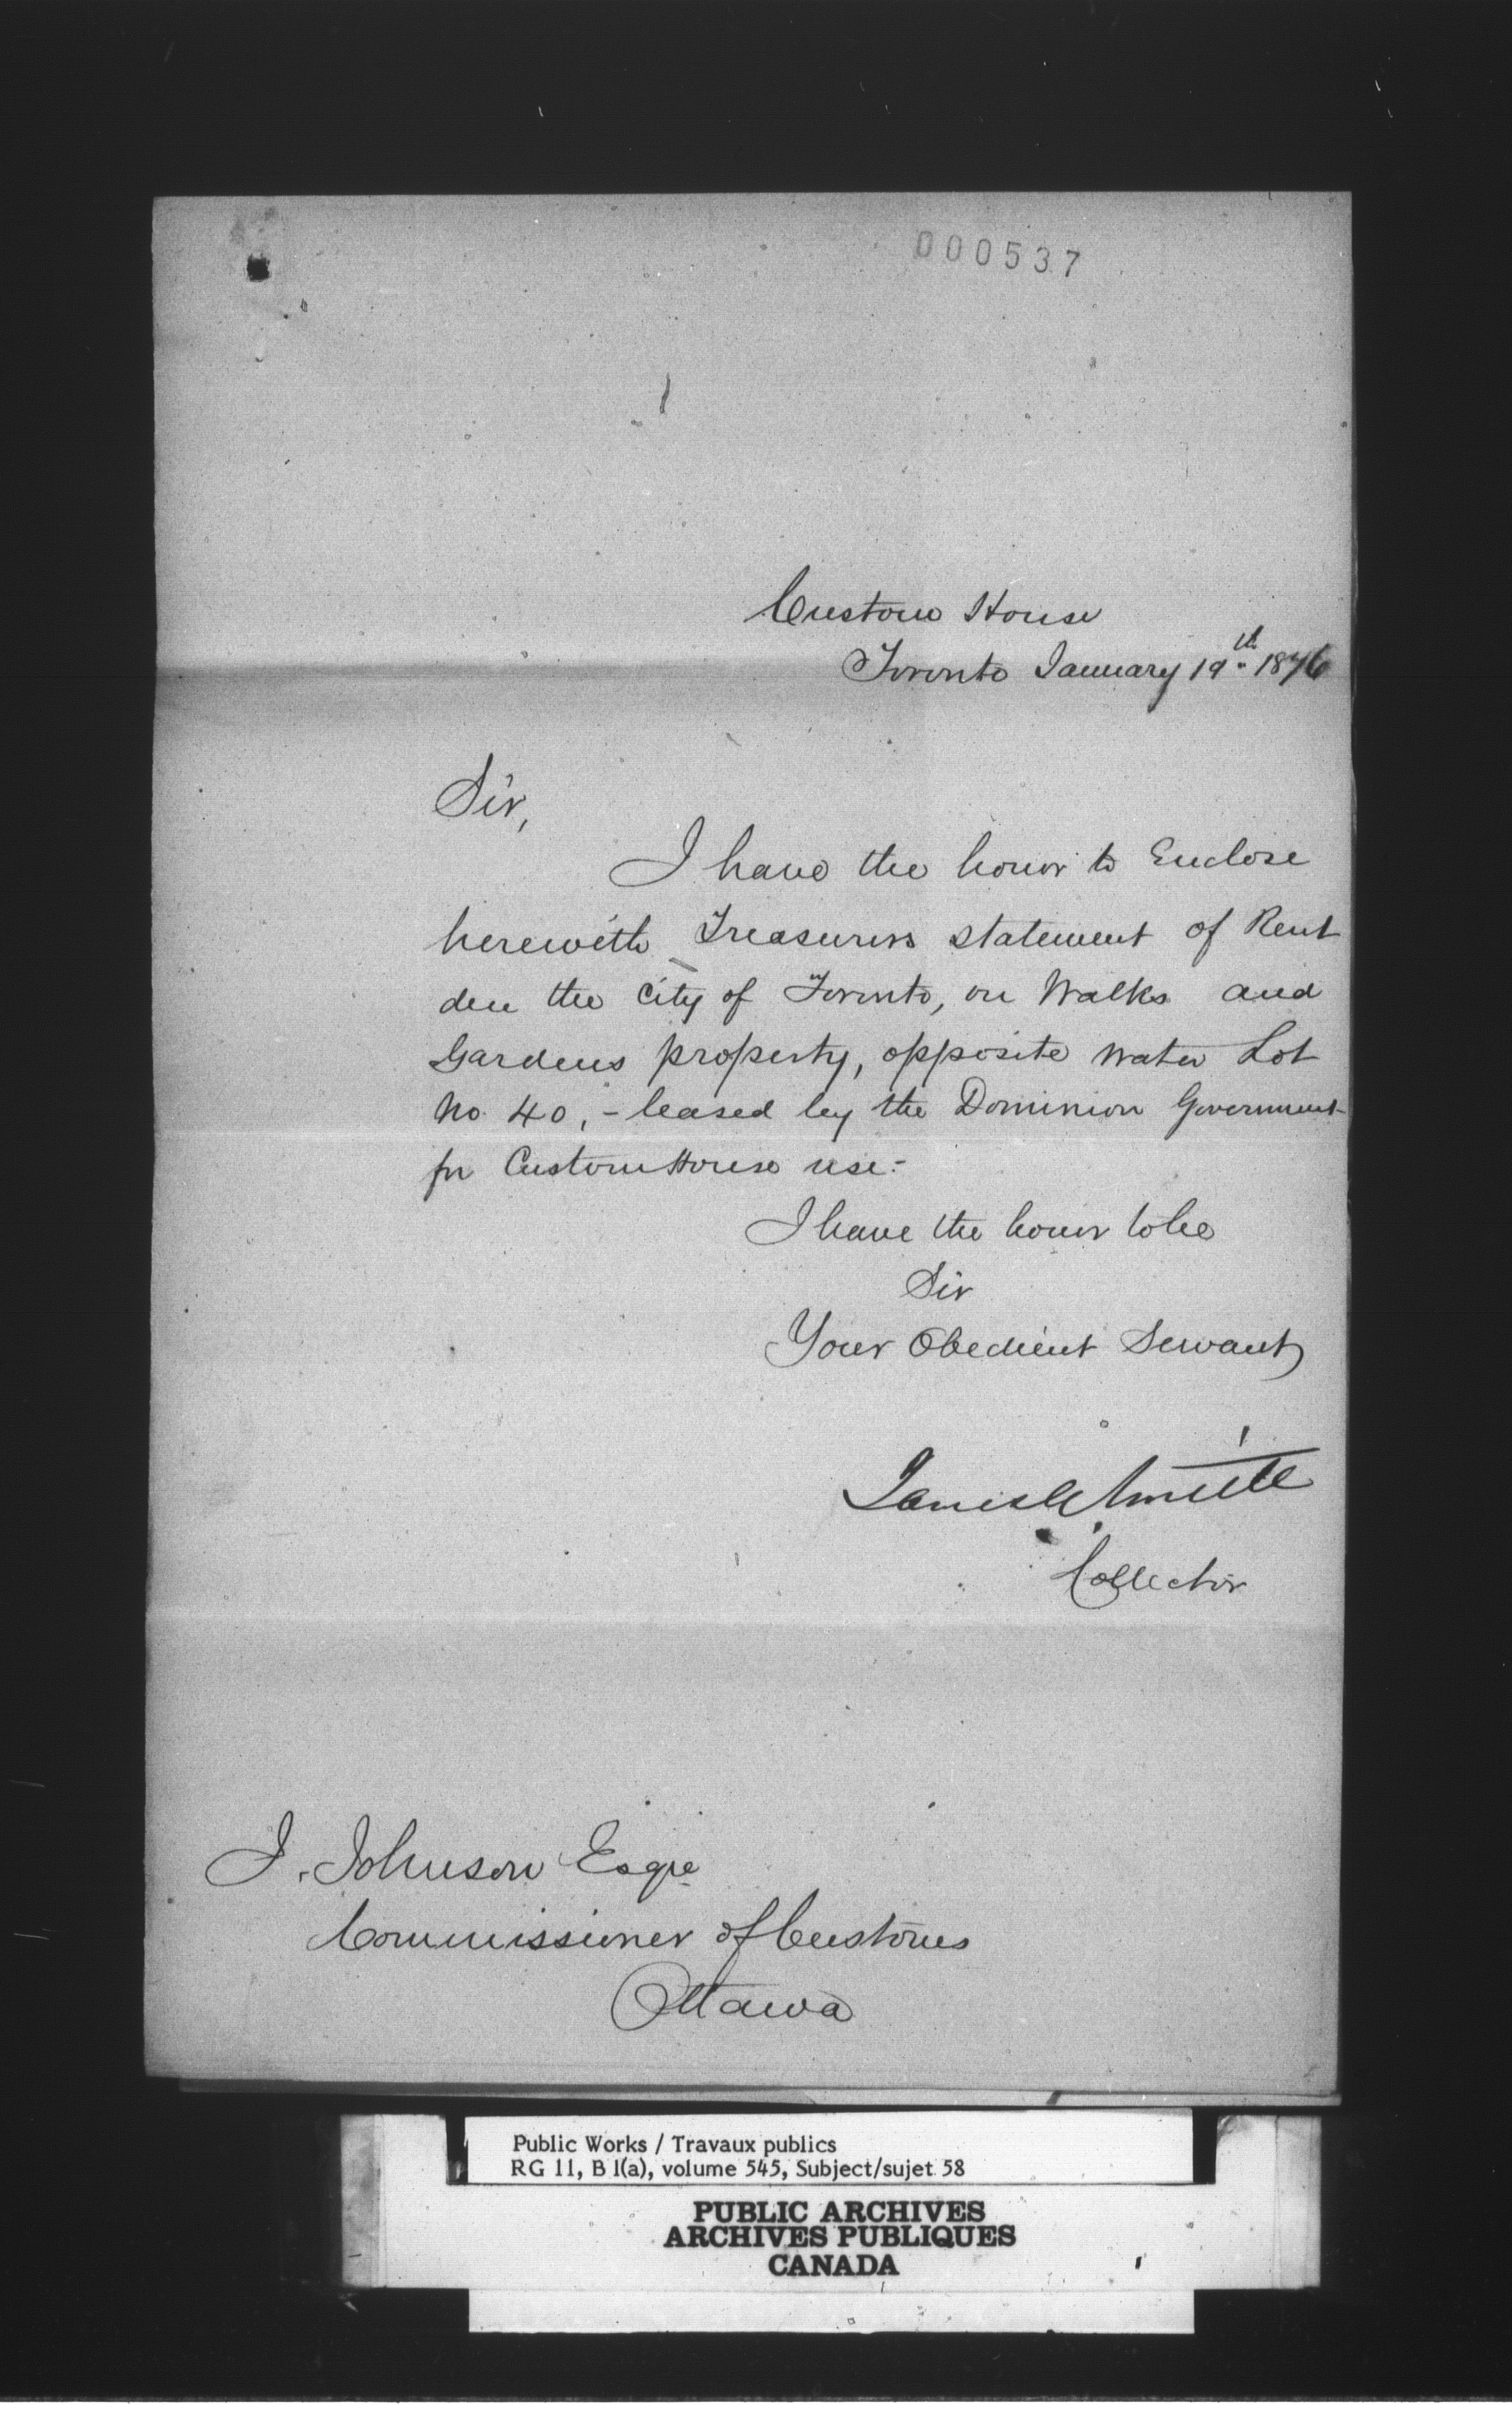 000537
Custom House
Toronto January 19th 1876
Sir,
I have the honor to Enclose
herewith Treasurers statement of Rent
due the City of Toronto, on Walks and
Gardens property, opposite Water Lot
No. 40, - leased by the Dominion Government
for Custom House use.-
I have the honor to be
Sir
Your Obedient Servant
James E Smith
Collector
J. Johnson Esqre
Commissioner of Customs
Ottawa
Public Works / Travaux publics
RG 11, B 1(a), volume 545, Subject/sujet 58
PUBLIC ARCHIVES
ARCHIVES PUBLIQUES
CANADA